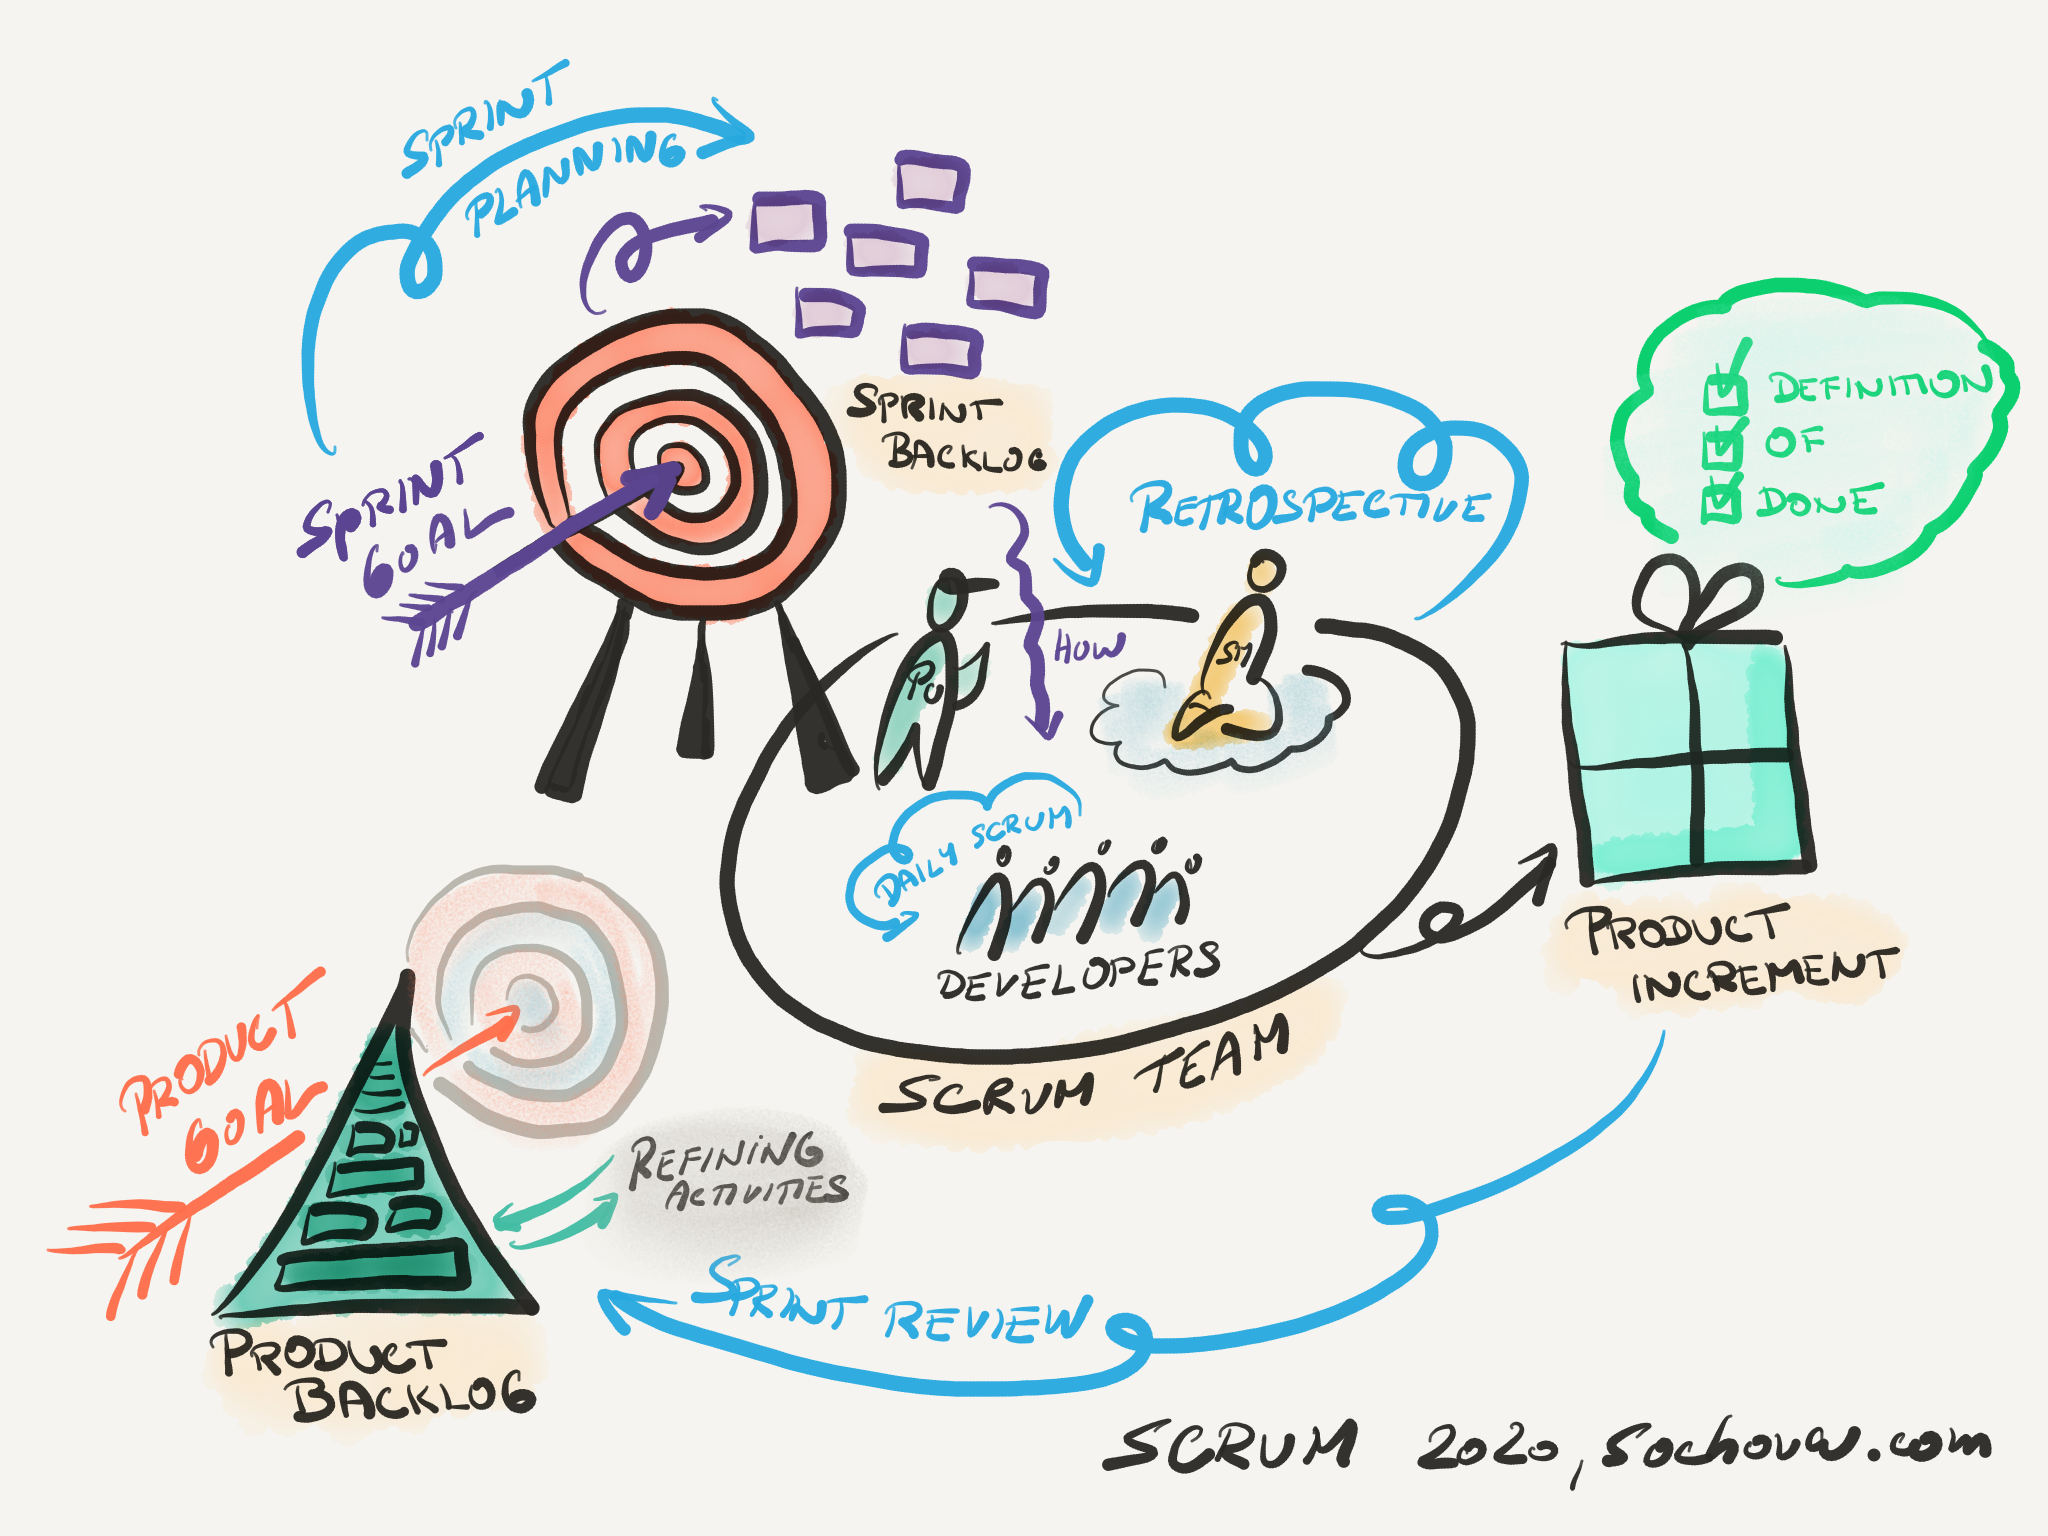 SPRINT
PLANNING
SPRINT
BACKLOG
SPRINT
GOAL
RETROSPECTIVE
DEFINITION
OF
DONE
HOW
PO
SM
DAILY SCRUM
DEVELOPERS
SCRUM TEAM
PRODUCT
INCREMENT
PRODUCT
GOAL
REFINING
ACTIVITIES
SPRINT REVIEW
PRODUCT
BACKLOG
SCRUM 2020, sochova.com